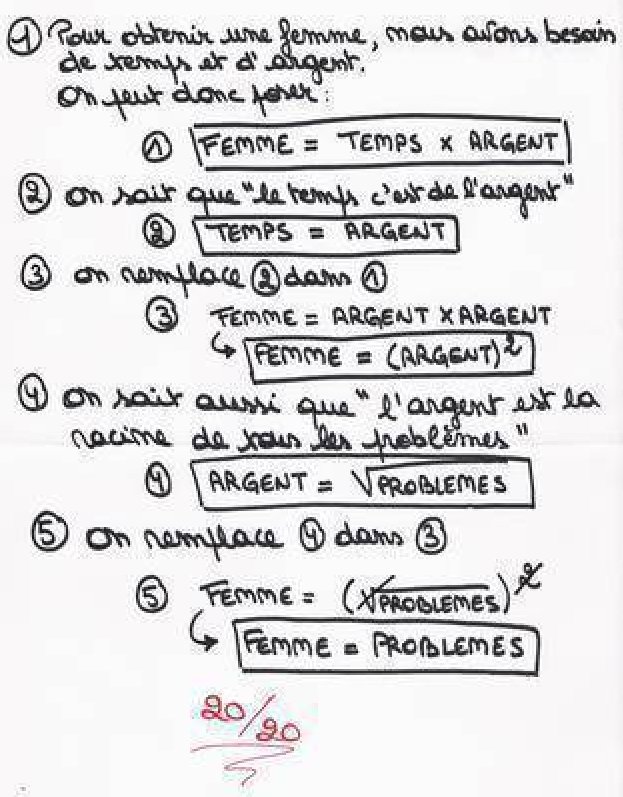 ① Pour obtenir une femme, nous avons besoin
de temps et d'argent.
On peut donc poser :
① FEMME = TEMPS x ARGENT
② on sait que "le temps c'est de l'argent"
② TEMPS = ARGENT
③ on remplace ② dans ①
③ FEMME = ARGENT x ARGENT
↳ FEMME = (ARGENT)²
④ on sait aussi que "l'argent est la
racine de tous les problèmes"
④ ARGENT = √PROBLEMES
⑤ on remplace ④ dans ③
⑤ FEMME = (√PROBLEMES)²
↳ FEMME = PROBLEMES
20/20